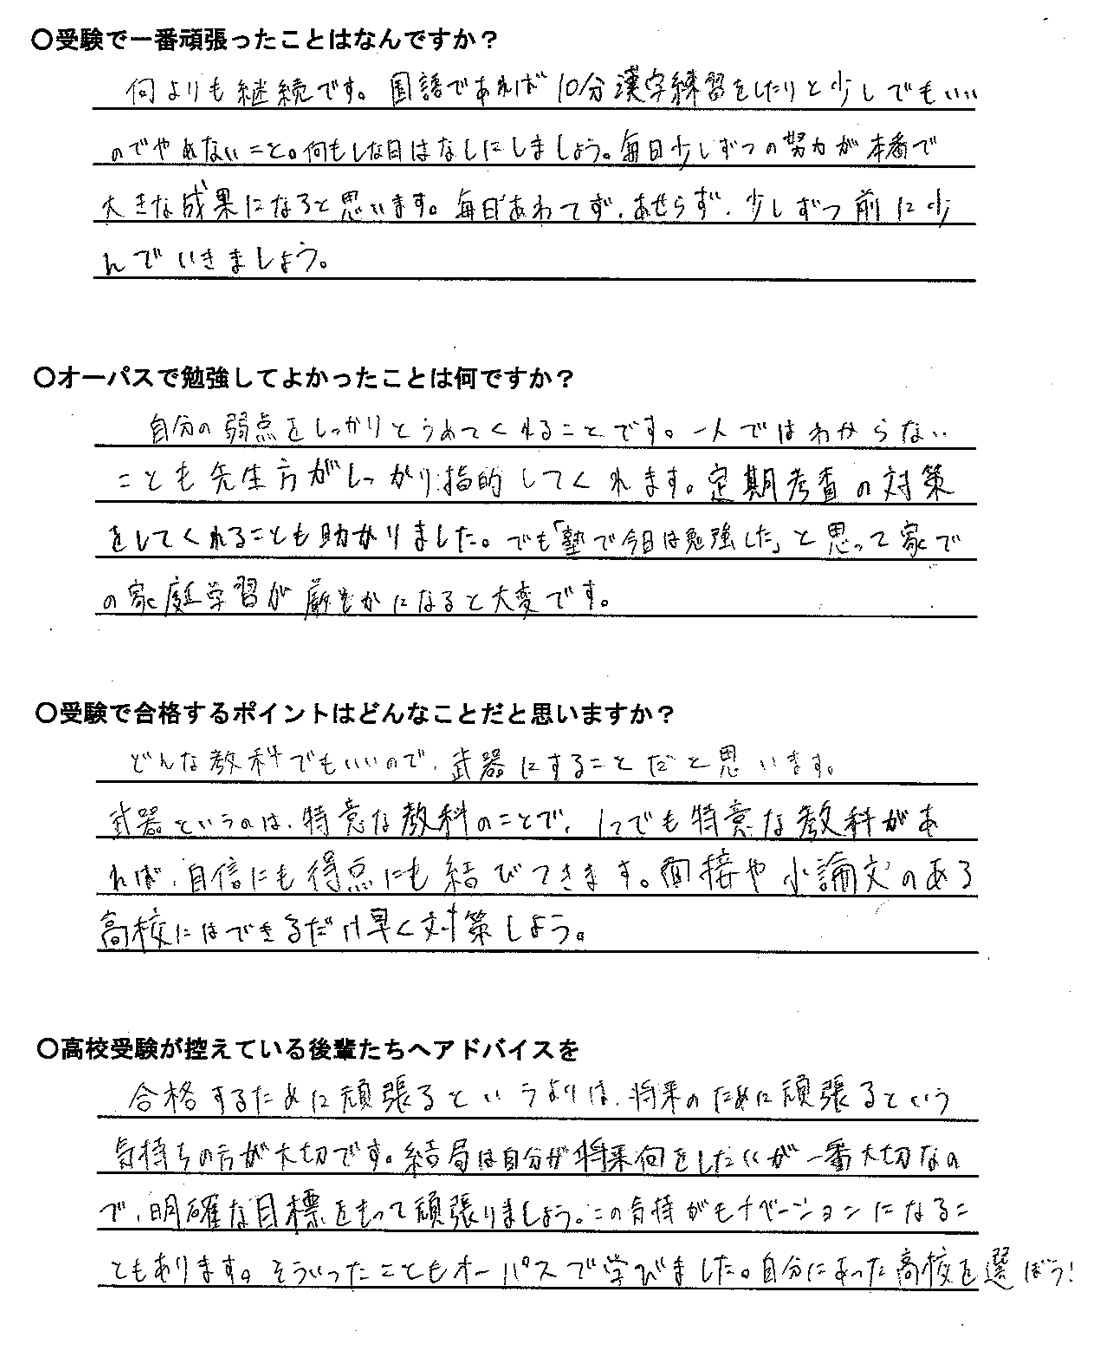 〇受験で一番頑張ったことはなんですか？
何よりも継続です。国語であれば10分漢字練習をしたりと少しでもいい
のでやめないこと。何もしな日はなしにしましょう。毎日少しずつの努力が本番で
大きな成果になると思います。毎日あわてず、あせらず、少しずつ前に歩
んでいきましょう。
〇オーパスで勉強してよかったことは何ですか？
自分の弱点をしっかりとうめてくれることです。一人ではわからない
ことも先生方がしっかり指的してくれます。定期考査の対策
をしてくれることも助かりました。でも「塾で今日は勉強した」と思って家で
の家庭学習が厳そかになると大変です。
〇受験で合格するポイントはどんなことだと思いますか？
どんな教科でもいいので、武器にすることだと思います。
武器というのは、特意な教科のことで、1つでも特意な教科があ
れば、自信にも得点にも結びつきます。面接や小論文のある
高校にはできるだけ早く対策しよう。
〇高校受験が控えている後輩たちへアドバイスを
合格するために頑張るというよりは、将来のために頑張るという
気持ちの方が大切です。結局は自分が将来何をしたいかが一番大切なの
で、明確な目標をもって頑張りましょう。この気持がモチベーションになるこ
ともあります。そういったこともオーパスで学びました。自分にあった高校を選ぼう！